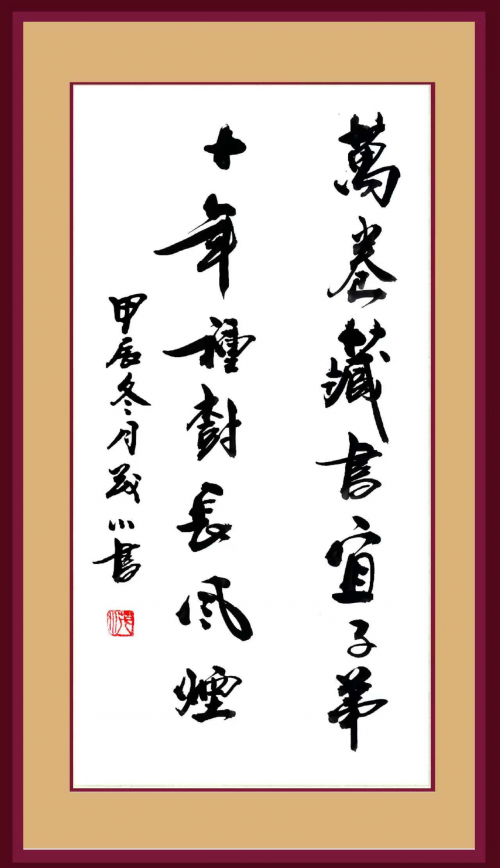 萬卷藏書宜子弟
十年種樹長風煙
甲辰冬月茂川書